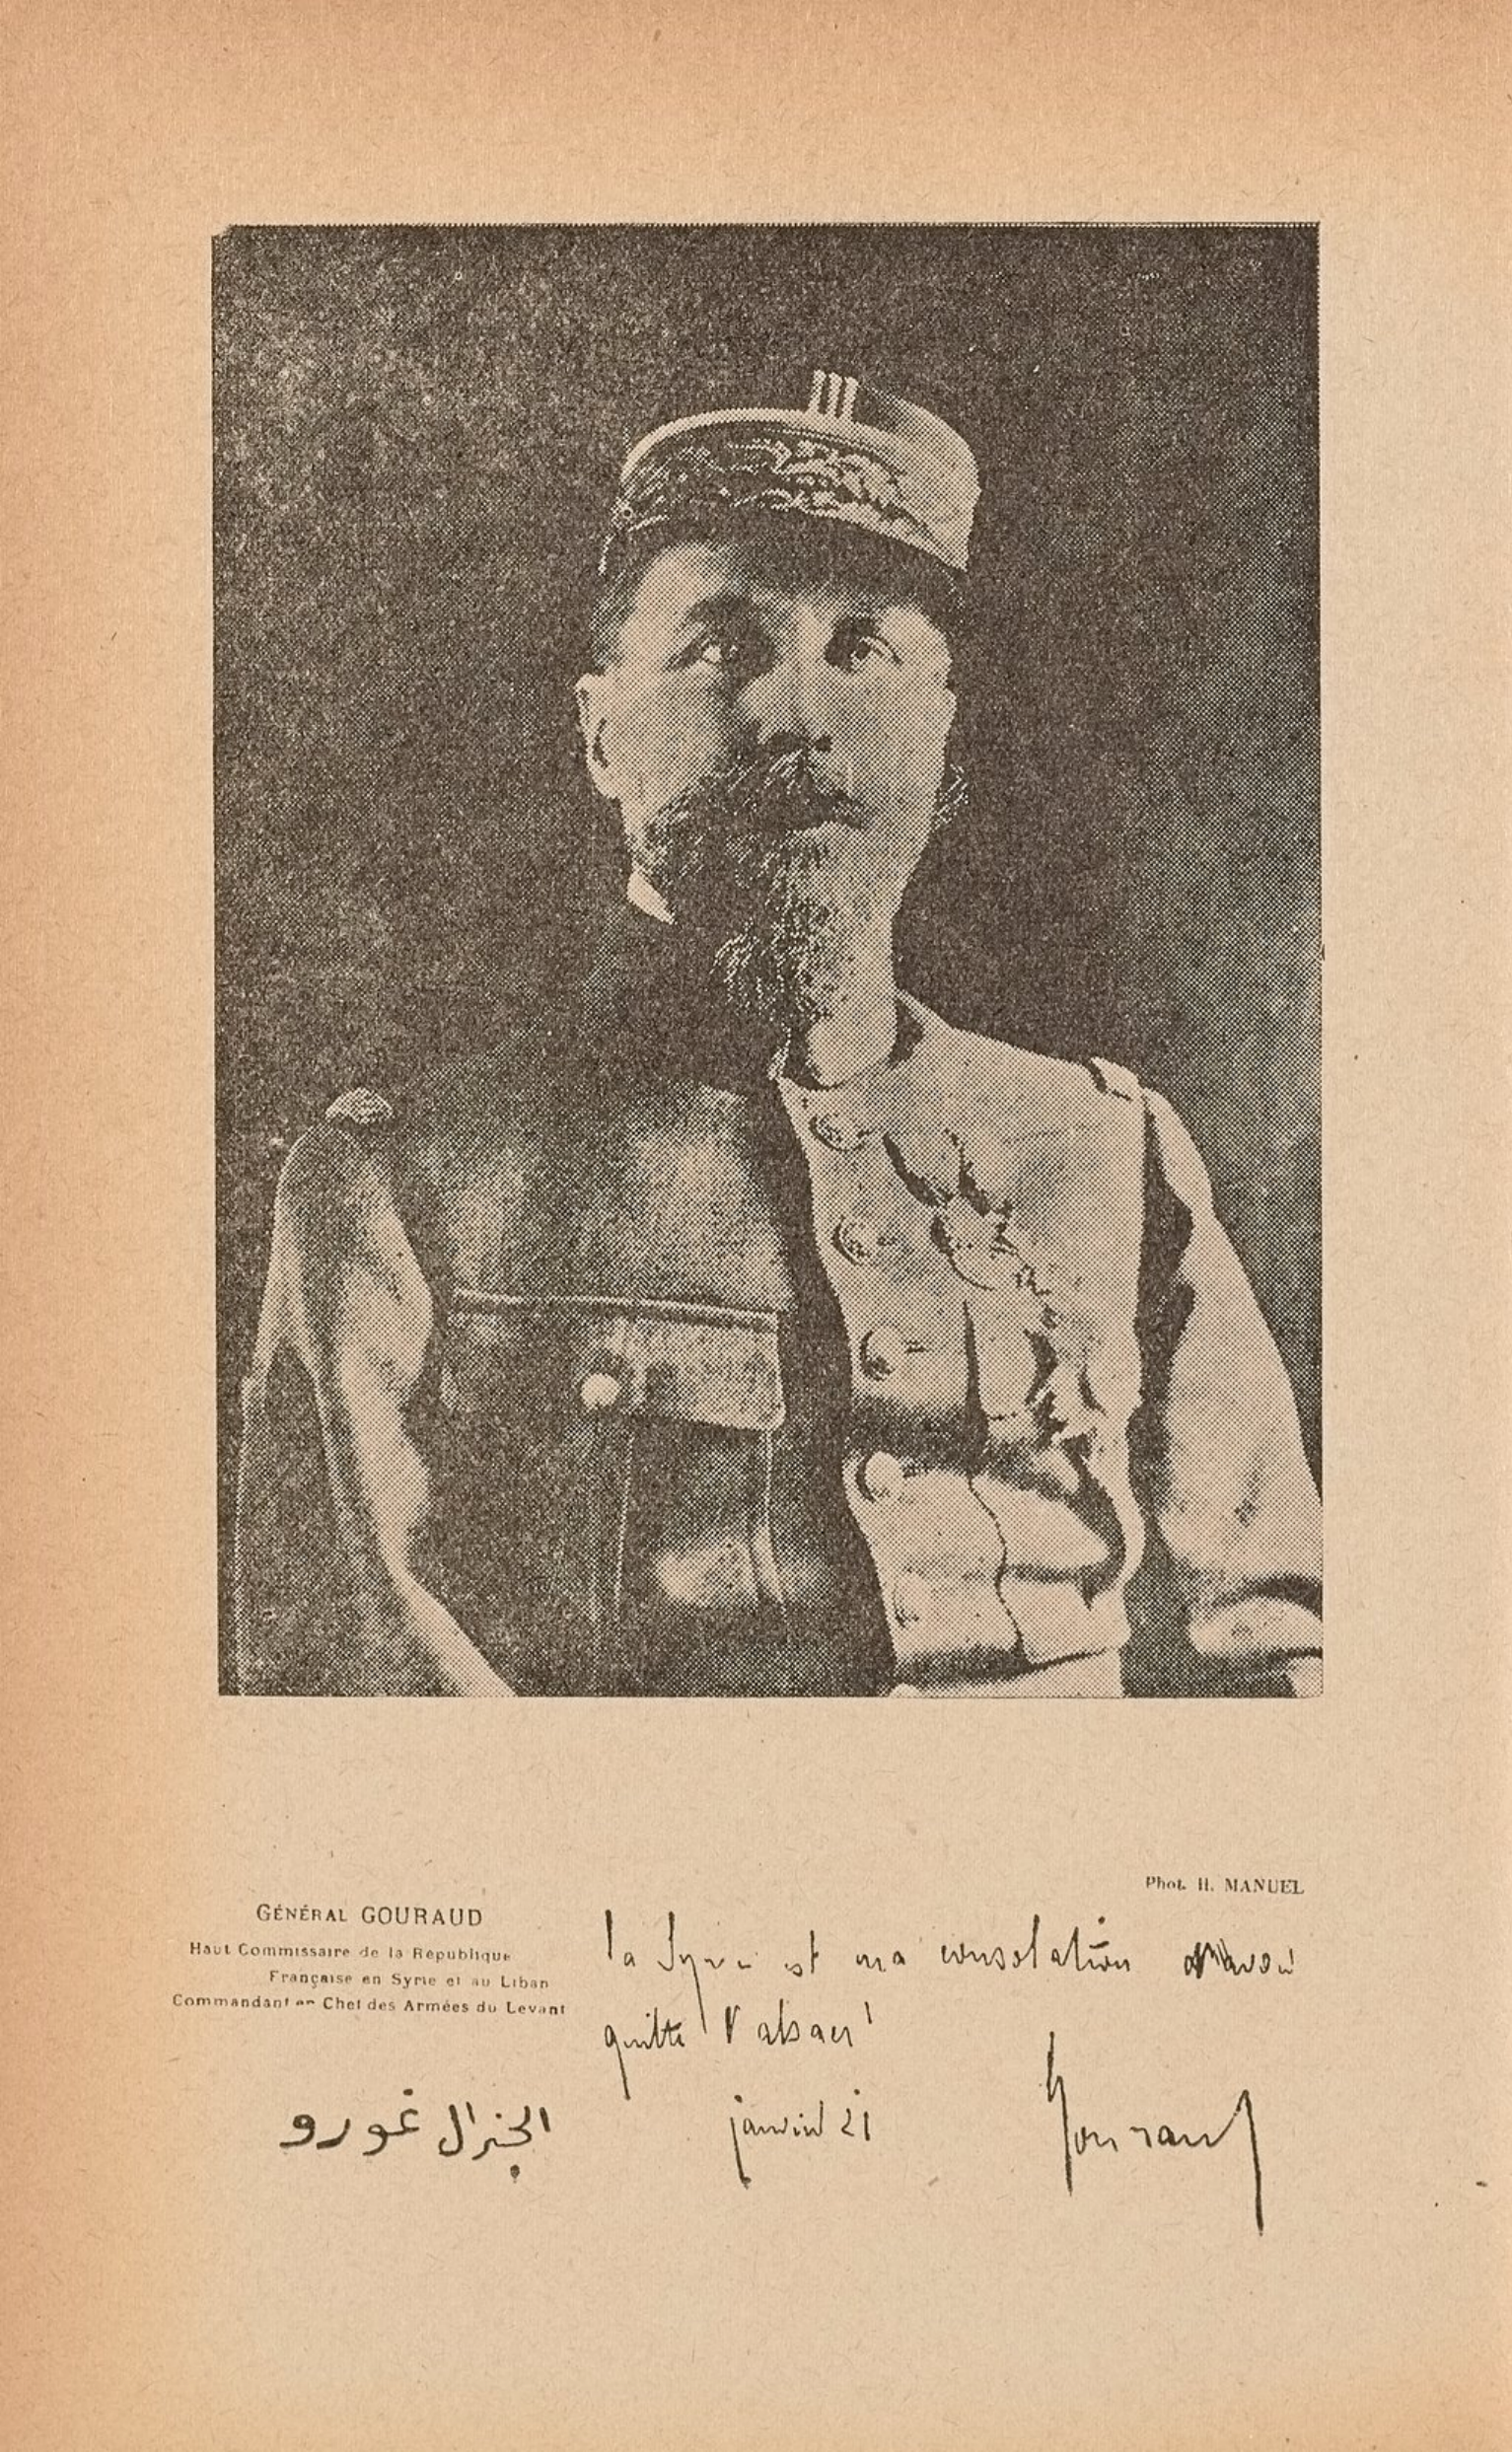 Phot. H. MANUEL
GÉNÉRAL GOURAUD
Haut Commissaire de la République
Française en Syrie et au Liban
Commandant en Chef des Armées du Levant
la Syrie est ma consolation d'avoir
quitté l'alsace
janvier 21
Gouraud
الجنرال غورو